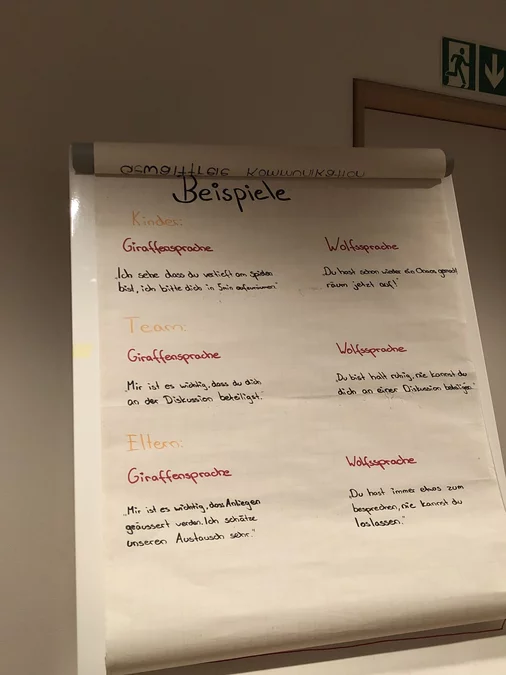 Gewaltfreie Kommunikation
Beispiele
Kinder:
Giraffensprache
Wolfssprache
„Ich sehe dass du vertieft am spielen
bist, ich bitte dich in 5min aufzuräumen."
„Du hast schon wieder ein Chaos gemacht
räum jetzt auf!"
Team:
Giraffensprache
Wolfssprache
„Mir ist es wichtig, dass du dich
an der Diskussion beteiligst."
„Du bist halt ruhig, nie kannst du
dich an einer Diskussion beteiligen."
Eltern:
Giraffensprache
Wolfssprache
„Mir ist es wichtig, dass Anliegen
geäussert werden. Ich schätze
unseren Austausch sehr."
„Du hast immer etwas zum
besprechen, nie kannst du
loslassen."